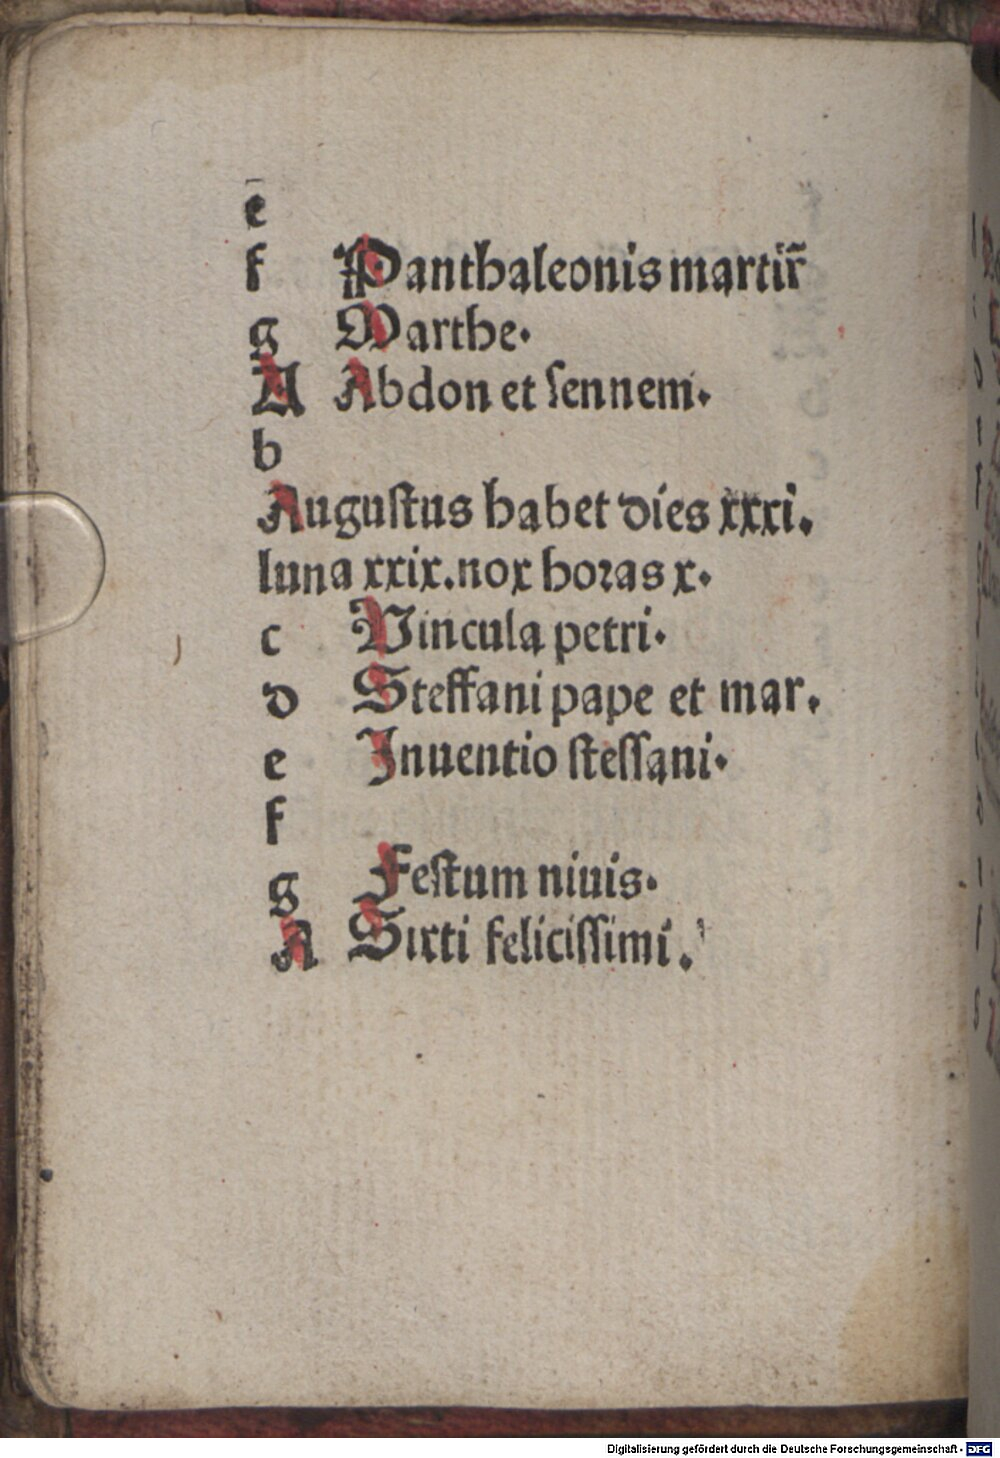 e
f Panthaleonis martir̃
g Marthe.
A Abdon et sennem.
b
Augustus habet dies xxxi.
luna xxix. nox horas x.
c Vincula petri.
d Steffani pape et mar.
e Inuentio stessani.
f
g Festum niuis.
A Sixti felicissimi.
Digitalisierung gefördert durch die Deutsche Forschungsgemeinschaft - DFG